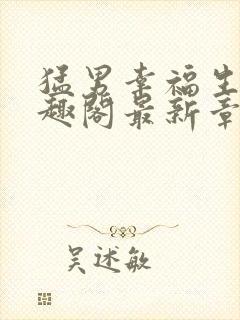 猛男幸福生
趣阁最新章
吴述敏